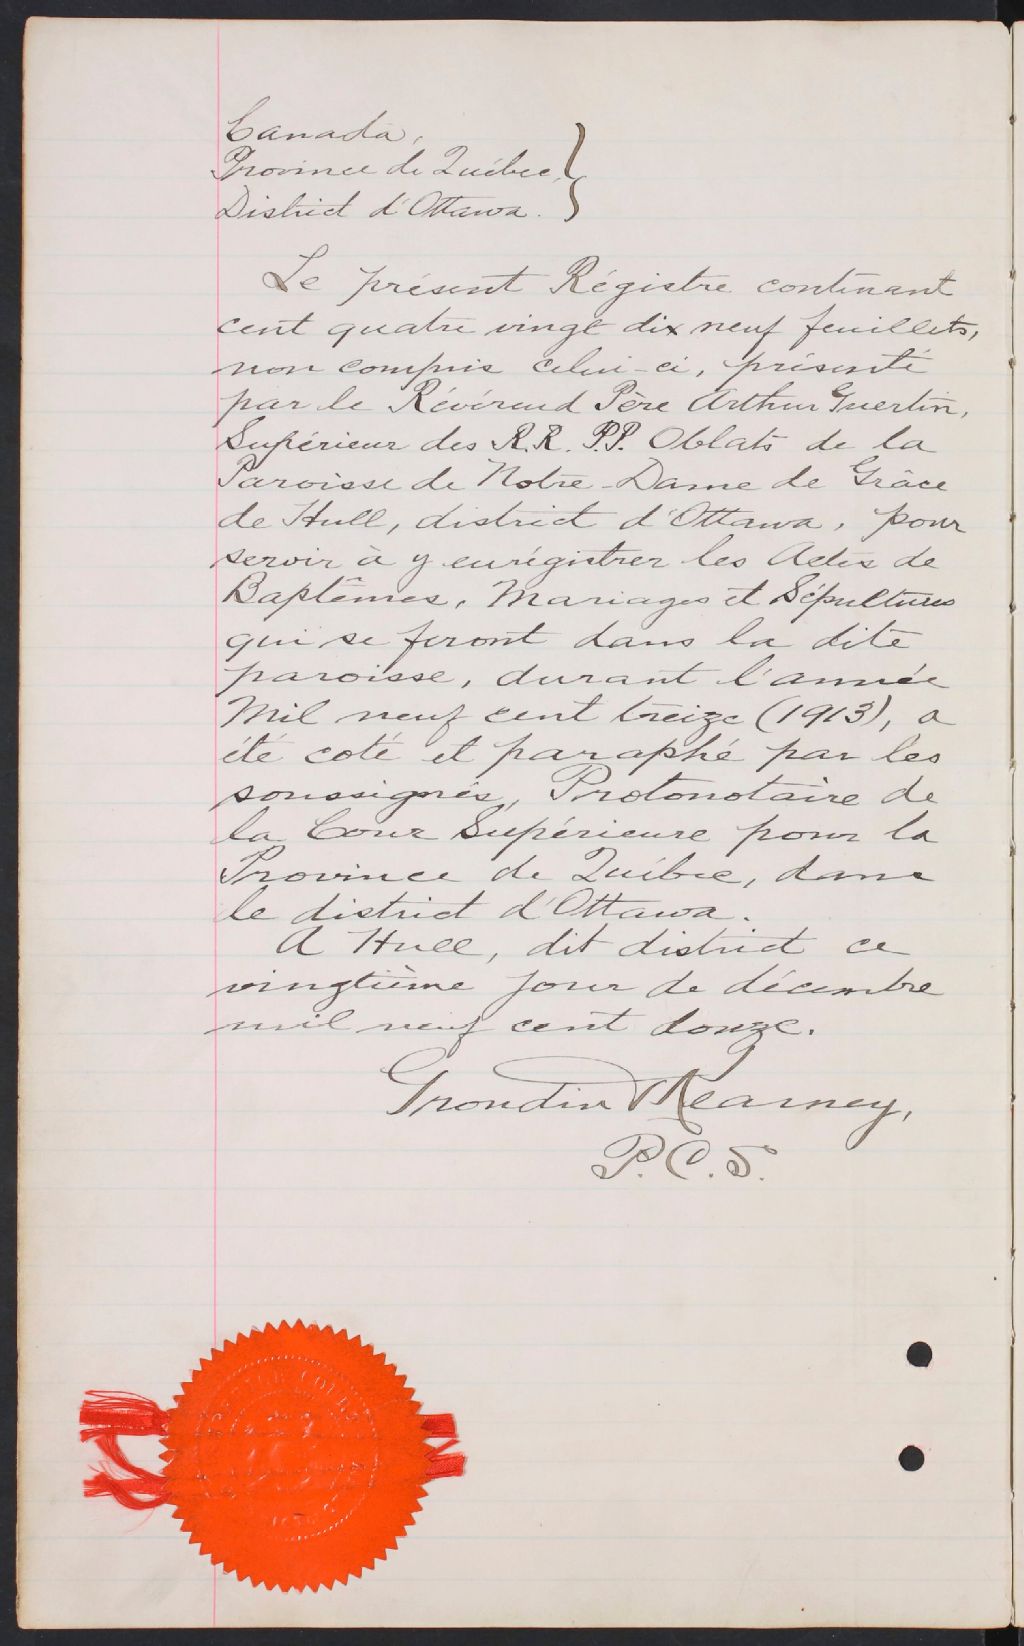 Canada,
Province de Québec,
District d'Ottawa.
Le présent Régistre contenant
cent quatre vingt dix neuf feuillets,
non compris celui-ci, présenté
par le Révérend Père Arthur Guertin,
Supérieur des R.R. P.P. Oblats de la
Paroisse de Notre-Dame de Grâce
de Hull, district d'Ottawa, pour
servir à y enrégistrer les Actes de
Baptêmes, Mariages et Sépultures
qui se feront dans la dite
paroisse, durant l'année
Mil neuf cent treize (1913), a
été coté et paraphé par les
soussignés, Protonotaire de
la Cour Supérieure pour la
Province de Québec, dans
le district d'Ottawa.
A Hull, dit district ce
vingtième jour de décembre
mil neuf cent douze.
Grondin & Kearney,
P.C.S.